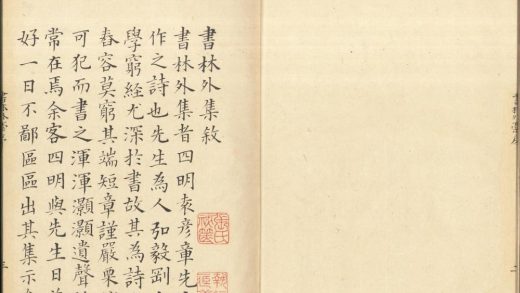 書林外集敘
書林外集者四明袁彥章先
作之詩也先生為人弘毅剛
學窮經尤深於書故其為詩
舂容莫窮其端短章謹嚴衆
可犯而書之渾渾灝灝遺聲
常在焉余客四明與先生日
好一日不鄙區區出其集示